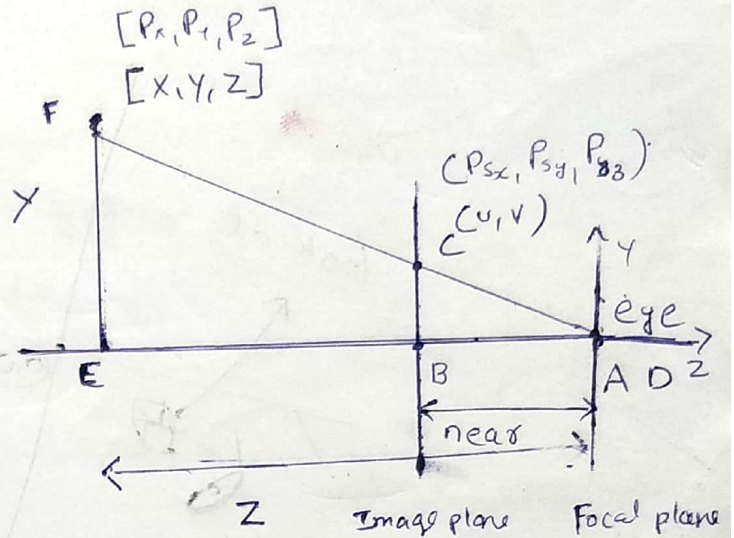 [Px, Py, Pz]
[X, Y, Z]
F
Y
(Psx, Psy, Psz)
(u, v)
C
Y
eye
E
B
A D Z
near
Z
Image plane
Focal plane